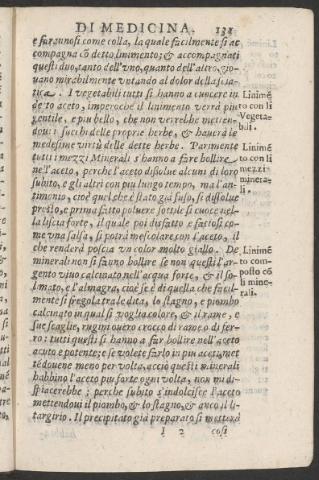 DI MEDICINA. 131
e farāunosi come colla, la quale facilmente si ac
compagna cō detto linimento; & accompagnati
questi duo, tanto dell'uno, quanto dell'altro, gio-
uano mirabilmente vntando al dolor della scia-
tica. I vegetabili tutti si hanno a cuocere in
detto aceto, imperoche il linimento verrà piu
gentile, e piu bello, che non verrebbe metten-
doui i succhi delle proprie herbe, & hauerà le
medesime virtù delle dette herbe. Parimente
tutti i mezzi Minerali s'hanno a far bollire
nell'aceto, perche l'aceto dissolue alcuni di loro
subito, e gli altri con piu lungo tempo, ma l'an-
timonio, cioè quel che è stato già fuso, si dissolue
presto, e prima fatto poluere sottile si cuoce nel-
la liscia forte, il quale poi disfatto e fattosi co-
me vna salsa, si potrà mescolare con l'aceto, il
che renderà poscia vn color molto giallo. De
minerali non si fanno bollire se non questi l'ar-
gento viuo calcinato nell'acqua forte, & il so-
limato, e l'almagra, cioè se è di quella che facil-
mente si sregola trale dita, lo stagno, e piombo
calcinato in qual si voglia colore, & il rame, e
sue scaglie, rugini ouero crocco di rame, o di fer-
ro: tutti questi si hanno a far bollire nell'aceto
acuto e potente; e se volete farlo in piu aceti, met
tédouene meno per volta, acciò questi minerali
habbino l'aceto piu forte ogni volta, non mi di-
spiacerebbe; perche subito s'indolcisce l'aceto
mettendoui il piombo, & lo stagno, & anco il li-
targirio. Il precipitato già preparato si metterà
I 2 cosi
Linimē
to con li
Vegeta-
bili.
Linimē
to con li
mezzi
minera-
li.
Linimē
to com-
posto cō
li mine-
rali.